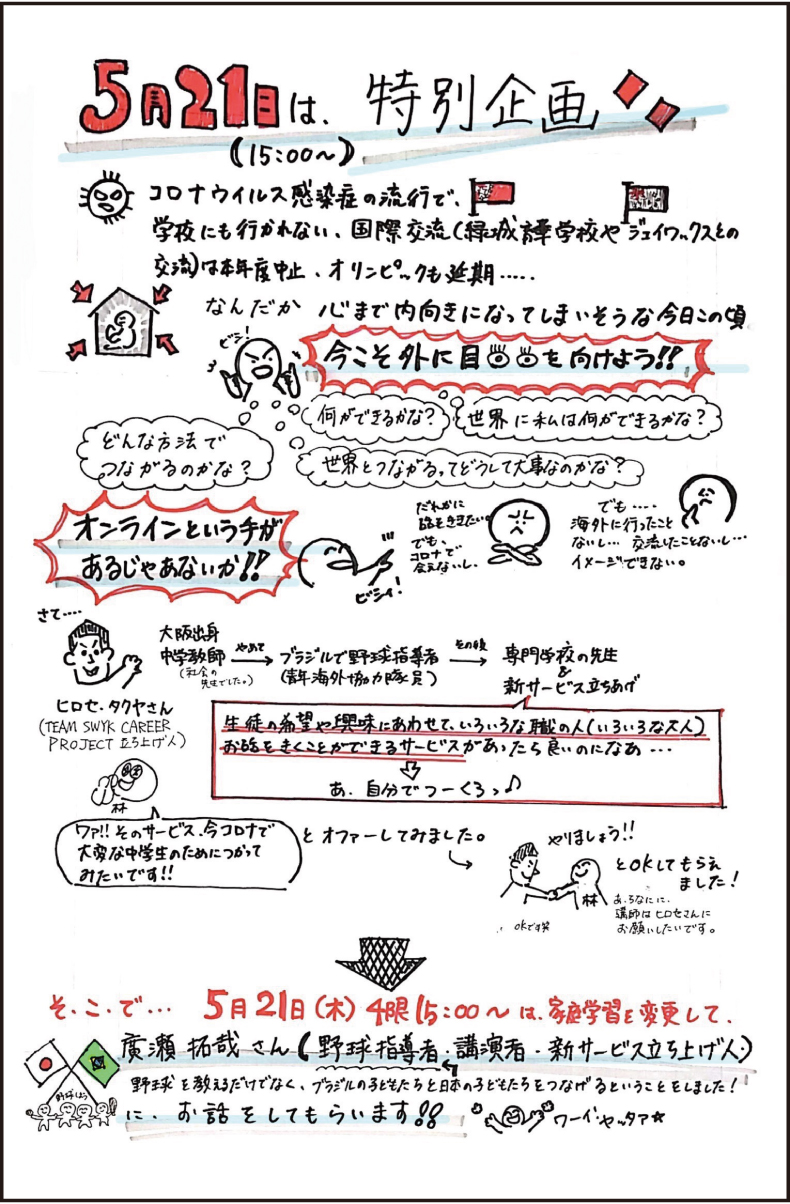 5月21日は、特別企画
(15:00〜)
コロナウイルス感染症の流行で、
学校にも行かれない、国際交流(緑城育華学校やジェイワックスとの
交流)は本年度中止、オリンピックも延期.....
なんだか 心まで内向きになってしまいそうな今日この頃
ビシ!
今こそ外に目を向けよう!!
何ができるかな?
世界に私は何ができるかな?
どんな方法で
つながるのかな?
世界とつながるってどうして大事なのかな?
オンラインという手が
あるじゃあないか!!
ビシィ!
だれかに
話をききたい。
でも、
コロナで
会えないし、
でも....
海外に行ったこと
ないし… 交流したことないし…
イメージできない。
さて....
大阪出身
中学教師
(社会の
先生でした。)
やめて
ブラジルで野球指導者
(青年海外協力隊員)
その後
専門学校の先生
&
新サービス立ちあげ
ヒロセ・タクヤさん
(TEAM SWYK CAREER
PROJECT 立ち上げ人)
生徒の希望や興味にあわせて、いろいろな職の人(いろいろな大人)
お話をきくことができるサービスがあったら良いのになあ…
あ、自分でつーくろっ♪
林
ワァ!! そのサービス、今コロナで
大変な中学生のためにつかって
みたいです!!
とオファーしてみました。
やりましょう!!
林
OKです笑
とOKしてもらえ
ました!
あ、ちなみに、
講師はヒロセさんに
お願いしたいです。
そ、こ、で… 5月21日(木) 4限15:00〜は、家庭学習を変更して、
廣瀬拓哉さん(野球指導者・講演者・新サービス立ち上げ人)
野球を教えるだけでなく、ブラジルの子どもたちと日本の子どもたちをつなげるということをしました!
野球しよう
に、お話をしてもらいます!!
ワーイ・ヤッタァ☆